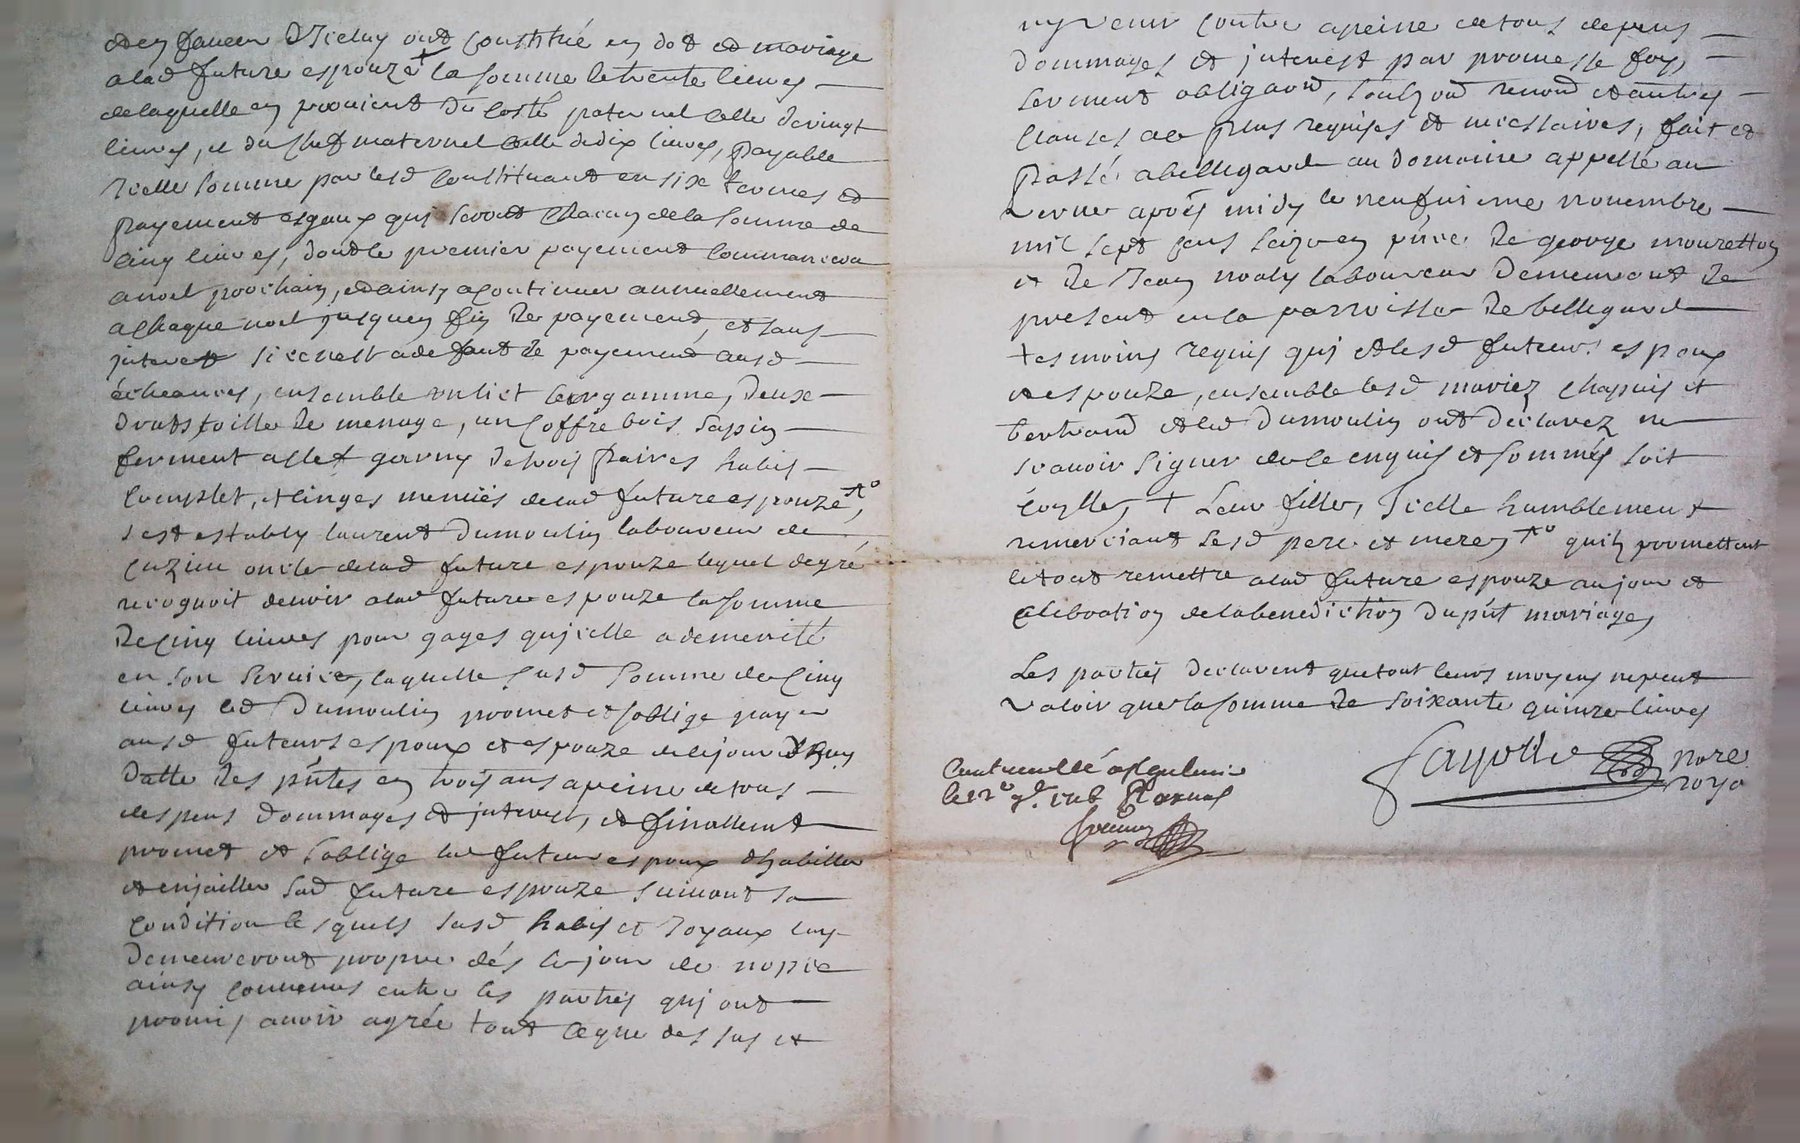 et en faveur d'Icluy ont constitué en dot et mariage
a lad future espouze + la somme de trente livres
de laquelle en provient du costé paternel celle de vingt
livres, et du chef maternel celle de dix livres, payable
Icelle somme par lesd constituant en six termes et
payement esgaux qui seront chacun de la somme de
cinq livres, dont le premier payement commancera
a noel prochain, et ainsy a continuer annuellement
a chaque noel jusques fin de payement, et sans
interest si ce nest a defaut de payement ausd
écheances, ensemble un lict garny, deux
draps toille de menage, un coffre bois sapin
ferment a clef garny de trois paires habis
complet, et linges menües de lad future espouze +°,
sest estably laurent Dumoulin laboureur de
oncle de lad future espouze lequel de gré
recognoit devoir a lad future espouze la somme
de cinq livres pour gages qu'icelle a demerité
en son service, laquelle susd somme de cinq
livres led Dumoulin promet et soblige payer
ausd futeurs espoux et espouze de ce jour d'huy
datte des pntes en trois ans a peine de tous
despens dommages et interest, et finallemt
promet et soblige led futeur espoux d'habiller
et enjoailler sad future espouze suivant sa
condition lesquels susd habis et Joyaux luy
demeureront propre dés le jour de nopce
ainsy convenus entre les parties qui ont
promis avoir agrée tout ce que dessus et
ny venir contre a peine de tous depens
dommages et interest par promesse foy,
serment obligaon, soubzon renon et autres
clauses ad plus requises et necessaires, fait et
passé a bellegarde au domaine appellé au
verne aprés midy le neufvieme novembre
mil sept cens seize en pnce de george mouretton
et de Jean noaly laboureur demeurant de
present en la parroisse de bellegarde
tesmoins requis qui et lesd futeurs espoux
et espouze, ensemble lesd mariez Chapuis et
bertrand et led Dumoulin ont declarez ne
scavoir signer de ce enquis et sommés soit
+ leur fille, Icelle humblement
remerciant sesd pere et mere, +° quils promettent
le tout remettre a lad future espouze au jour et
celebration de la benediction du pnt mariage,
Les parties declarent que tout leurs moyens ne peut
valoir que la somme de soixante quinze livres
Fayolle nore
royal
Contrerollé a
le 12e 9e 1716